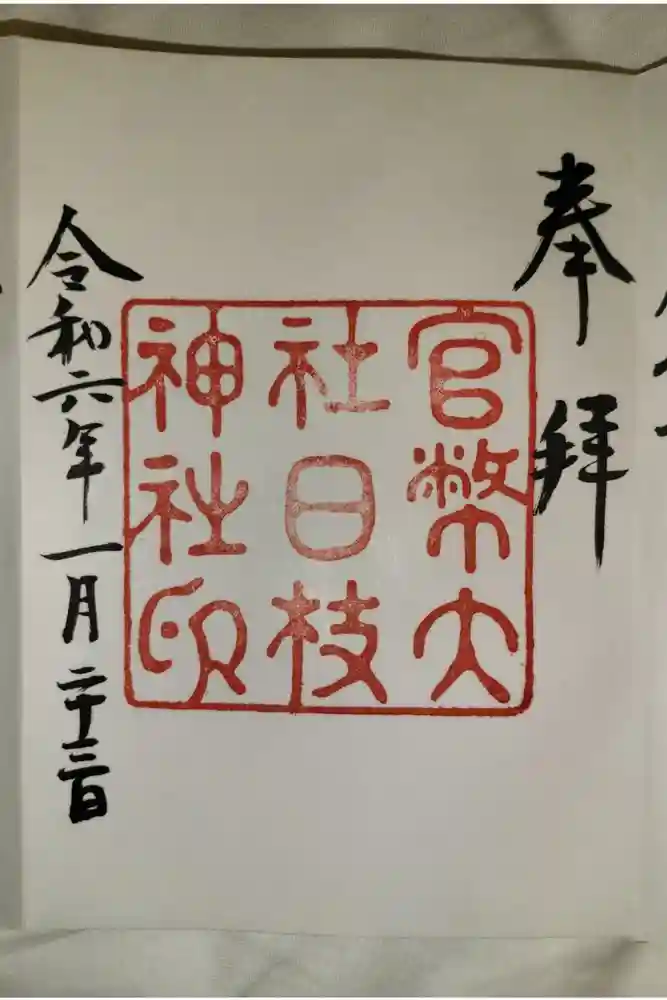 奉拝
官幣大
社日枝
神社印
令和六年一月二十三日